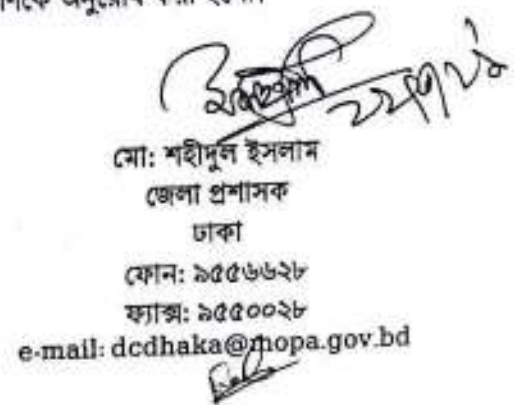 অনুরোধ করা হলো।
মো: শহীদুল ইসলাম
জেলা প্রশাসক
ঢাকা
ফোন: ৯৫৫৬৬২৮
ফ্যাক্স: ৯৫৫০০২৮
e-mail: dcdhaka@mopa.gov.bd